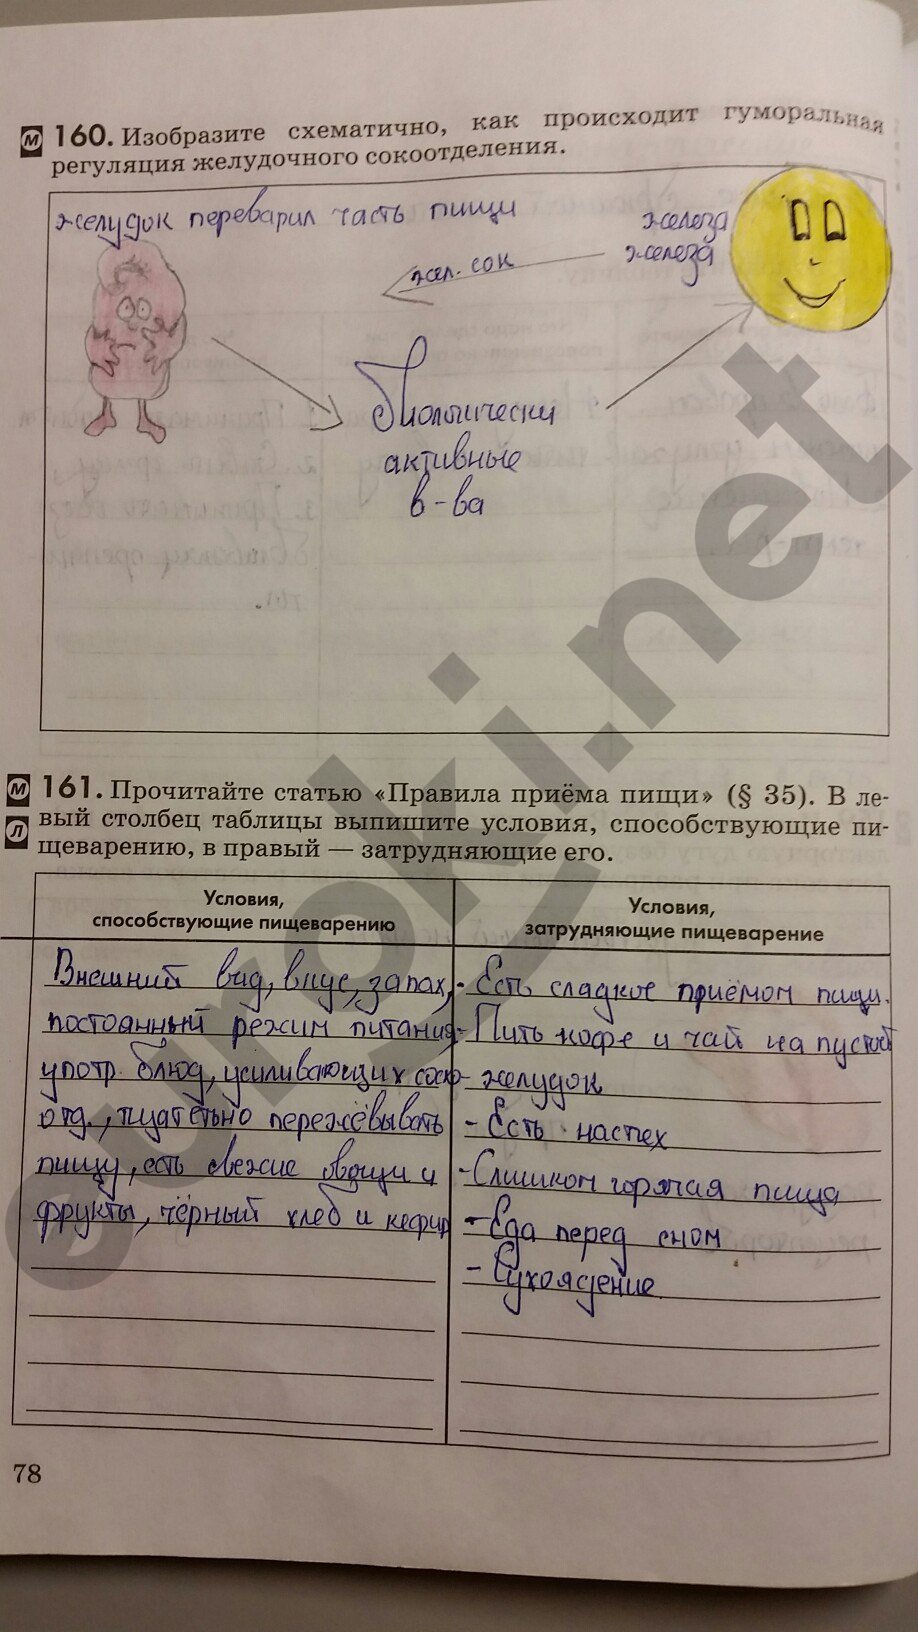 М 160. Изобразите схематично, как происходит гуморальная
регуляция желудочного сокоотделения.
желудок переварил часть пищи
железа
железа
жел. сок
биологически
активные
в-ва
М 161. Прочитайте статью «Правила приёма пищи» (§ 35). В ле-
Л вый столбец таблицы выпишите условия, способствующие пи-
щеварению, в правый — затрудняющие его.
Условия,
способствующие пищеварению
Внешний вид, вкус, запах,
постоянный режим питания,
употр. блюд, усиливающих соко-
отд., тщательно пережёвывать
пищу, есть свежие овощи и
фрукты, чёрный хлеб и кефир
Условия,
затрудняющие пищеварение
- Есть сладкое приёмом пищи.
- Пить кофе и чай на пустой
- желудок
- Есть наспех
- Слишком горячая пища
- Еда перед сном
- Сухоядение.
78
euroki.net